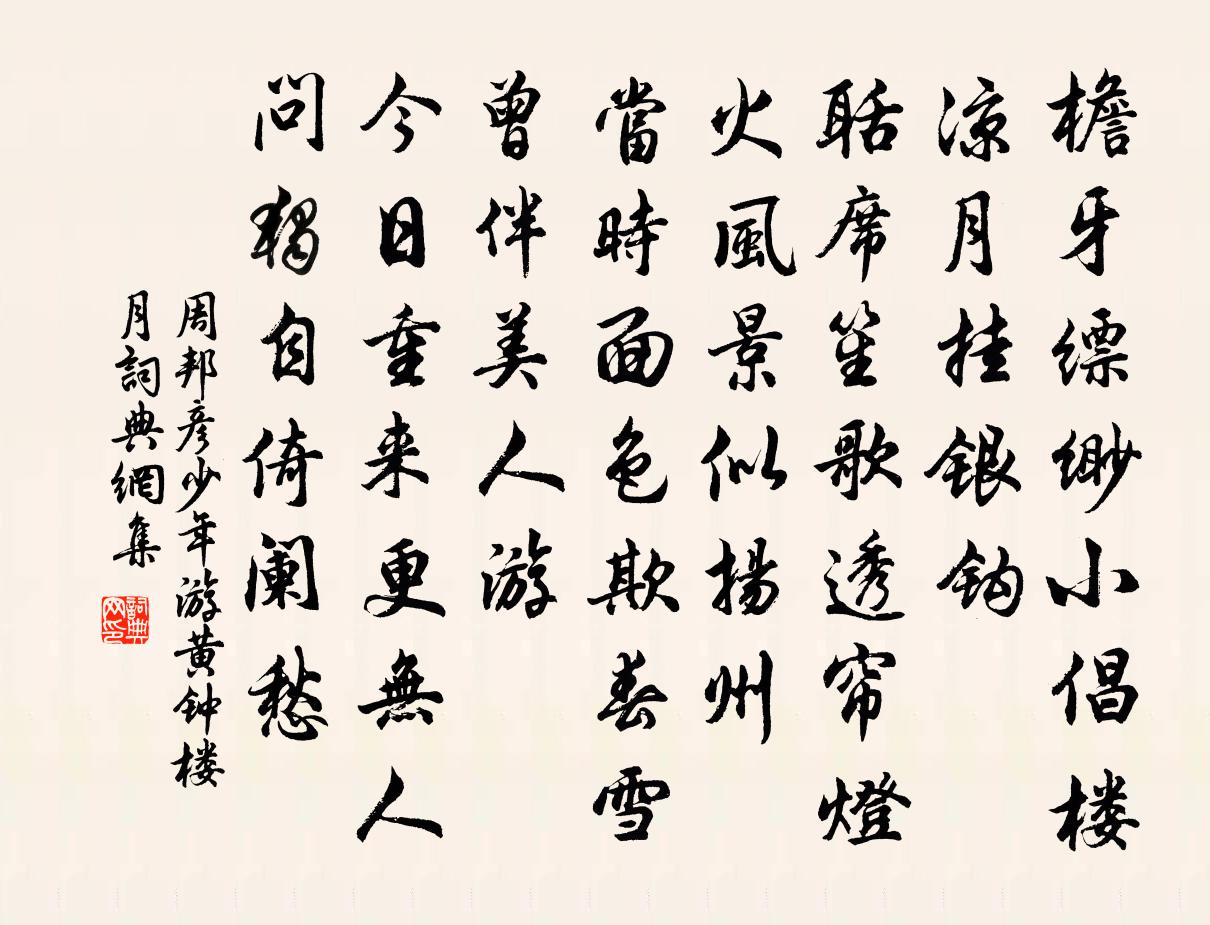 檐牙缥缈小倡楼
凉月挂银钩
聒席笙歌透帘燈
火風景似揚州
當時面色欺春雪
曾伴美人游
今日重来更無人
問獨自倚阑愁
周邦彦少年游黄钟楼
月詞典網集
詞典
网印